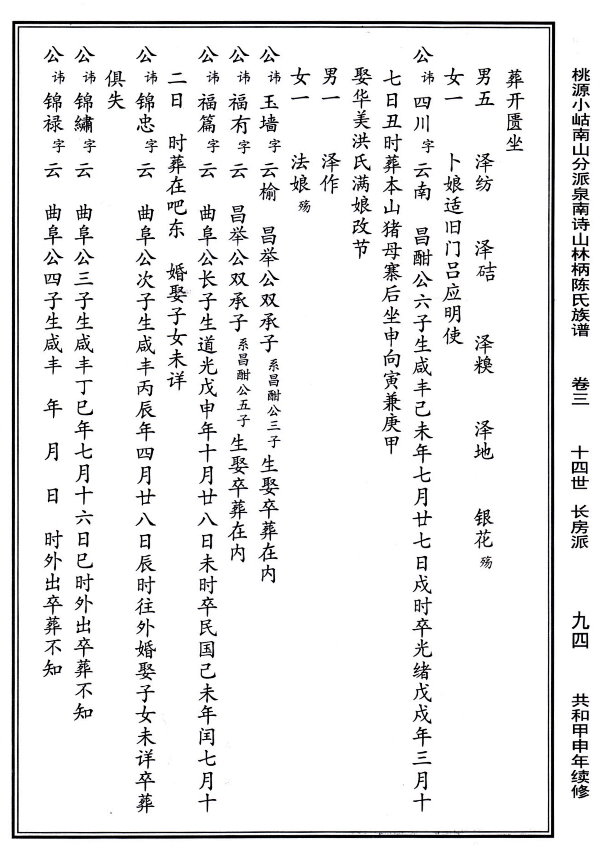 桃源小岵南山分派泉南诗山林柄陈氏族谱 卷三 十四世 长房派 九四 共和甲申年续修
葬开匮坐
男五 泽纺 泽硈 泽糗 泽地 银花殇
女一 卜娘适旧门吕应明使
公讳四川字云南 昌酣公六子生咸丰己未年七月廿七日戌时卒光绪戊戌年三月十
七日丑时葬本山猪母寨后坐申向寅兼庚甲
娶华美洪氏满娘改节
男一 泽作
女一 法娘殇
公讳玉墙字云榆 昌举公双承子系昌酣公三子生娶卒葬在内
公讳福有字云 昌举公双承子系昌酣公五子生娶卒葬在内
公讳福篇字云 曲阜公长子生道光戊申年十月廿八日未时卒民国己未年闰七月十
二日 时葬在吧东 婚娶子女未详
公讳锦忠字云 曲阜公次子生咸丰丙辰年四月廿八日辰时往外婚娶子女未详卒葬
俱失
公讳锦繡字云 曲阜公三子生咸丰丁巳年七月十六日巳时外出卒葬不知
公讳锦禄字云 曲阜公四子生咸丰 年 月 日 时外出卒葬不知